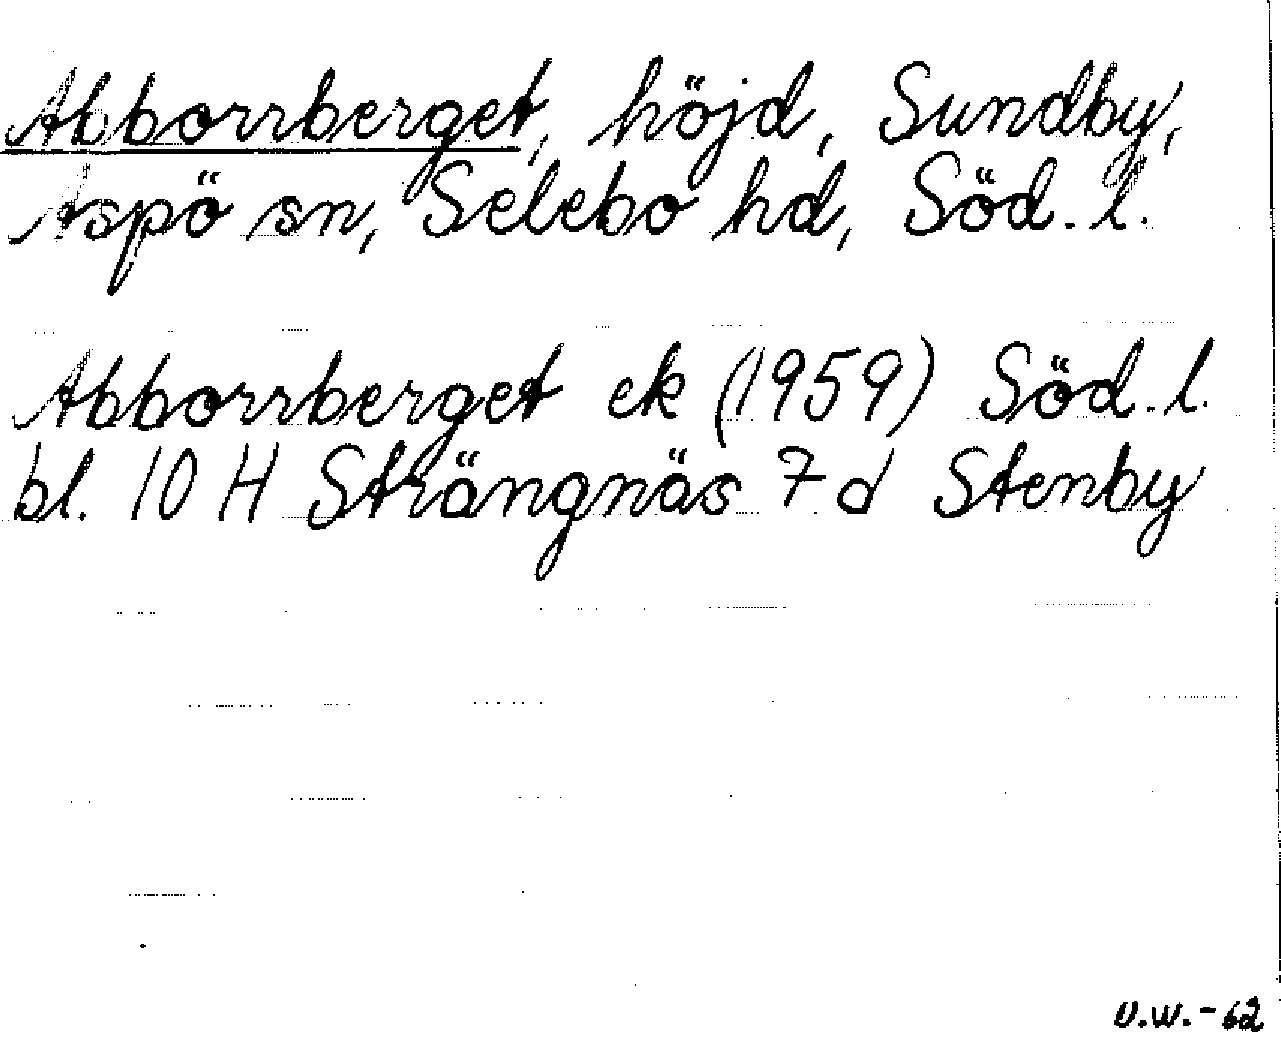 Abborrberget, höjd, Sundby,
Aspö sn, Selebo hd, Söd. l.
Abborrberget ek (1959) Söd. l.
bl. 10 H Strängnäs 7 d Stenby
U.W.-62